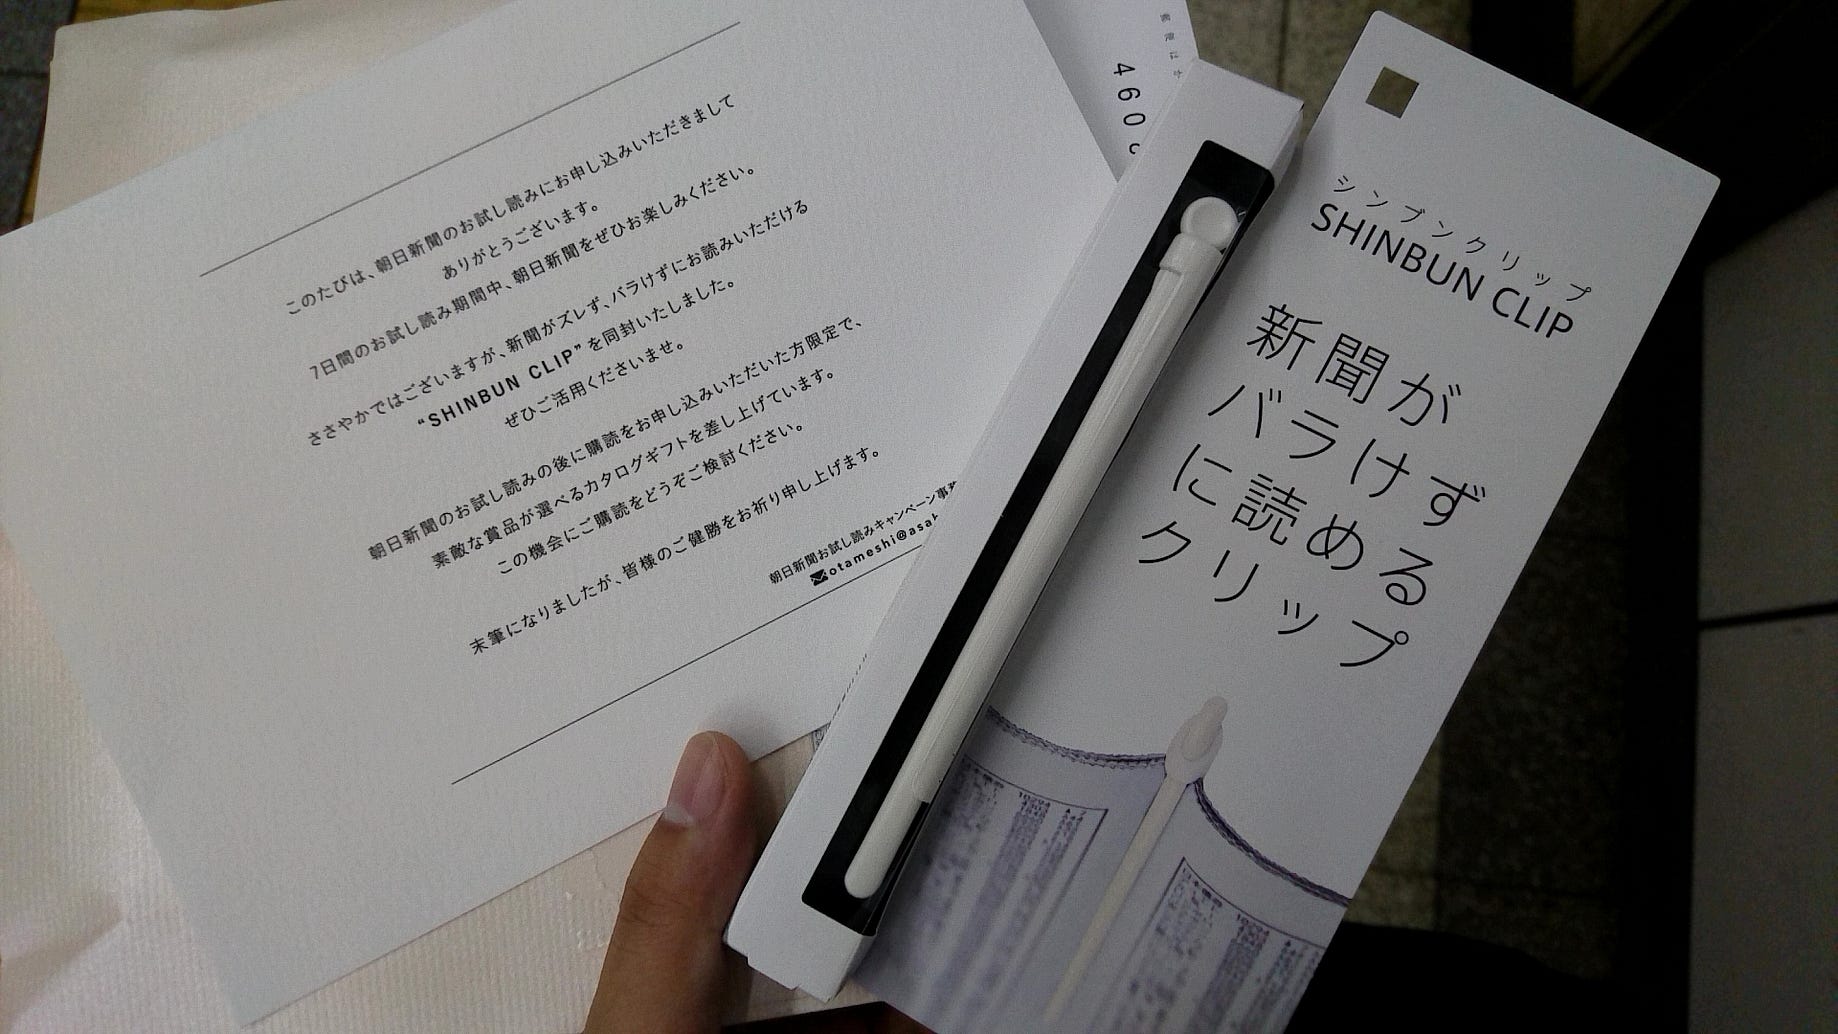 このたびは、朝日新聞のお試し読みにお申し込みいただきまして
ありがとうございます。
7日間のお試し読み期間中、朝日新聞をぜひお楽しみください。
ささやかではございますが、新聞がズレず、バラけずにお読みいただける
“SHINBUN CLIP”を同封いたしました。
ぜひご活用くださいませ。
朝日新聞のお試し読みの後に購読をお申し込みいただいた方限定で、
素敵な賞品が選べるカタログギフトを差し上げています。
この機会にご購読をどうぞご検討ください。
末筆になりましたが、皆様のご健勝をお祈り申し上げます。
朝日新聞お試し読みキャンペーン事
otameshi@asah
460
シンブンクリップ
SHINBUN CLIP
新聞が
バラけず
に読める
クリップ